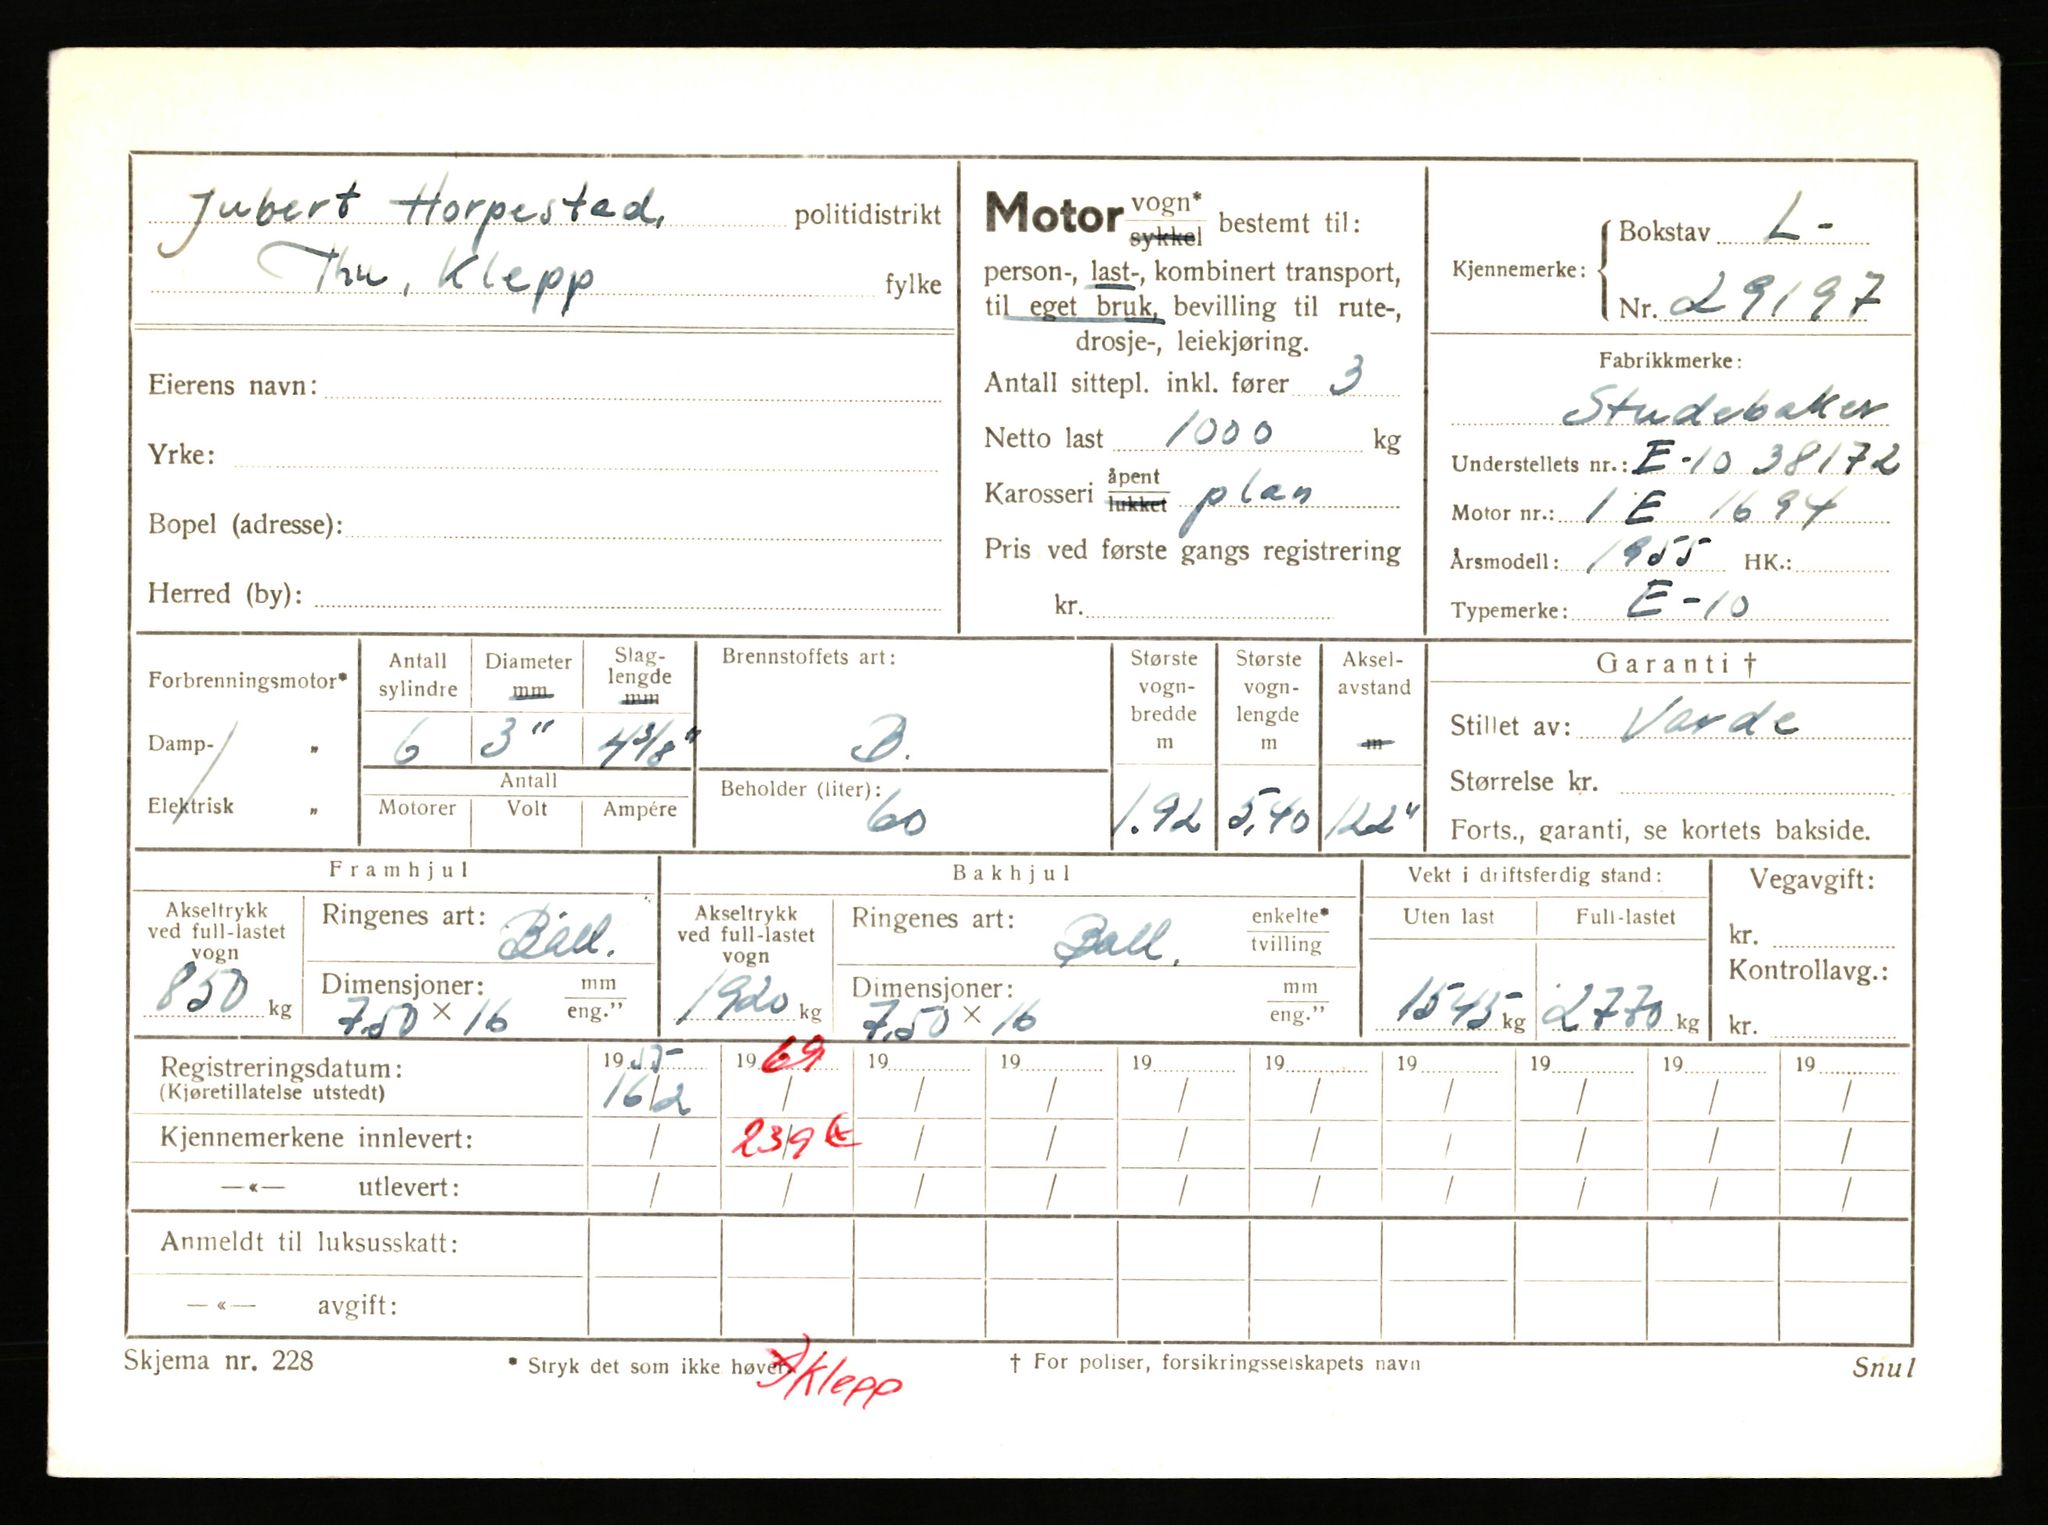 Jubert Horpestad, politidistrikt
Thu, Klepp fylke
Eierens navn:
Yrke:
Bopel (adresse):
Herred (by):
Motor vogn* sykkel bestemt til:
person-, last-, kombinert transport,
til eget bruk, bevilling til rute-,
drosje-, leiekjøring.
Antall sittepl. inkl. fører 3
Netto last 1000 kg
Karosseri åpent lukket plan
Pris ved første gangs registrering
kr.
Kjennemerke: Bokstav L-
Nr. 29197
Fabrikkmerke:
Studebaker
Understellets nr.: E-10 38172
Motor nr.: 1 E 1694
Årsmodell: 1955 HK.:
Typemerke: E-10
Forbrenningsmotor*
Damp- "
Elektrisk "
Antall sylindre
6
Diameter mm
3"
Slag-lengde mm
4 3/8"
Antall
Motorer Volt Ampére
Brennstoffets art:
B.
Beholder (liter):
60
Største vogn-bredde m
1.92
Største vogn-lengde m
5,40
Aksel-avstand m
122"
Garanti †
Stillet av: Varde
Størrelse kr.
Forts., garanti, se kortets bakside.
Framhjul
Akseltrykk
ved full-lastet
vogn
850 kg
Ringenes art: Ball.
Dimensjoner: mm
7.50 × 16 eng."
Bakhjul
Akseltrykk
ved full-lastet
vogn
1920 kg
Ringenes art: Ball. enkelte* tvilling
Dimensjoner: mm
7.50 × 16 eng."
Vekt i driftsferdig stand:
Uten last Full-lastet
1545 kg 2770 kg
Vegavgift:
kr.
Kontrollavg.:
kr.
Registreringsdatum: 1955 1969 19 19 19 19 19 19 19 19
(Kjøretillatelse utstedt) 16/2 / / / / / / / / /
Kjennemerkene innlevert: / 23/9 / / / / / / / /
—«— utlevert: / / / / / / / / / /
Anmeldt til luksusskatt:
—«— avgift:
Skjema nr. 228 * Stryk det som ikke høver. † For poliser, forsikringsselskapets navn Snul
x) Klepp